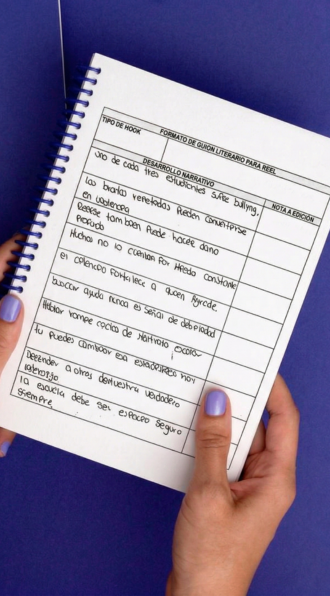 FORMATO DE GUIÓN LITERARIO PARA REEL
TIPO DE HOOK
DESARROLLO NARRATIVO
NOTA A EDICIÓN
uno de cada tres estudiantes sufre bullying,
las bromas repetidas pueden convertirse
en violencia
también puede hacer daño
profundo
Muchos no lo cuentan por miedo constante
el silencio fortalece a quien agrede,
buscar ayuda nunca es señal de debilidad
Hablar rompe ciclos de maltrato escolar
tu puedes cambiar esa estadística hoy
Defender a otros demuestra verdadero
liderazgo
la escuela debe ser espacio seguro
siempre